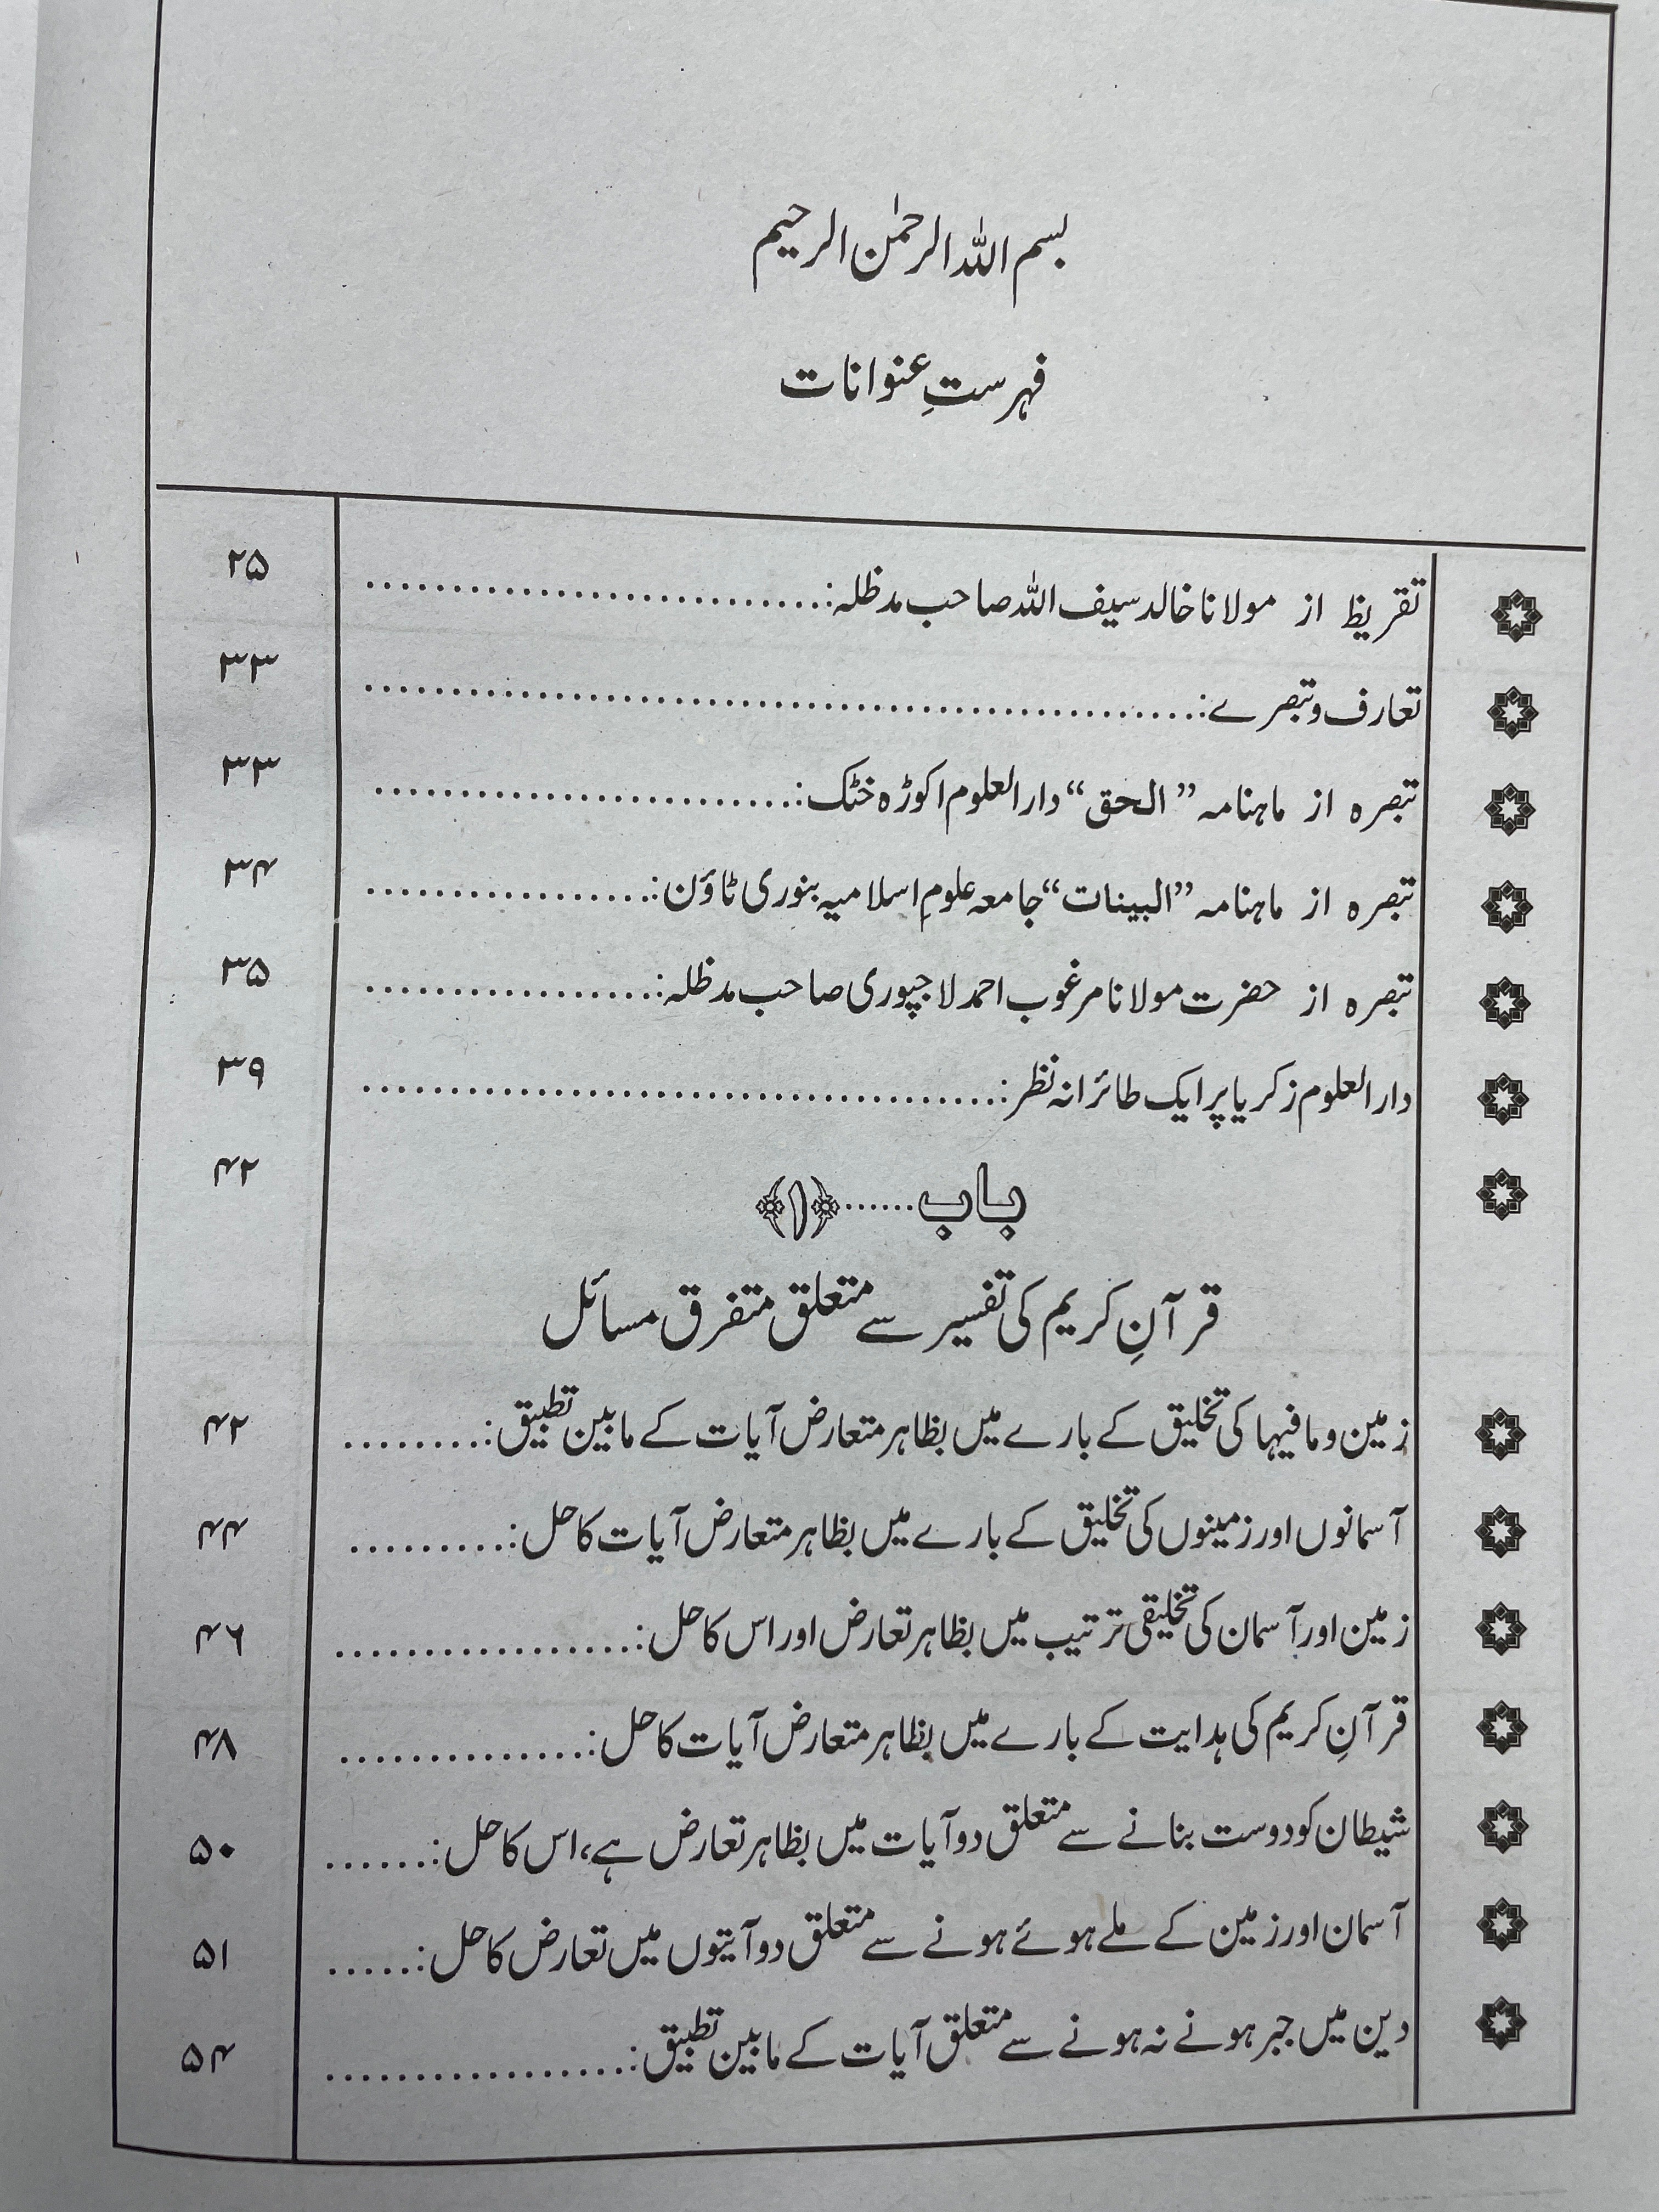 بسم اللہ الرحمٰن الرحیم
فہرستِ عنوانات
تقریظ از مولانا خالد سیف اللہ صاحب مدظلہ:.......................... ۲۵
تعارف وتبصرے:.......................................... ۳۳
تبصرہ از ماہنامہ ”الحق“ دارالعلوم اکوڑہ خٹک:......................... ۳۳
تبصرہ از ماہنامہ ”البینات“ جامعہ علومِ اسلامیہ بنوری ٹاؤن:................. ۳۴
تبصرہ از حضرت مولانا مرغوب احمد لاجپوری صاحب مدظلہ:................. ۳۵
دارالعلوم زکریا پر ایک طائرانہ نظر:..................................... ۳۹
باب......﴿۱﴾ ۴۲
قرآنِ کریم کی تفسیر سے متعلق متفرق مسائل
زمین وما فیہا کی تخلیق کے بارے میں بظاہر متعارض آیات کے مابین تطبیق:........ ۴۲
آسمانوں اور زمینوں کی تخلیق کے بارے میں بظاہر متعارض آیات کا حل:......... ۴۴
زمین اور آسمان کی تخلیقی ترتیب میں بظاہر تعارض اور اس کا حل:................. ۴۶
قرآنِ کریم کی ہدایت کے بارے میں بظاہر متعارض آیات کا حل:.............. ۴۸
شیطان کو دوست بنانے سے متعلق دو آیات میں بظاہر تعارض ہے، اس کا حل:...... ۵۰
آسمان اور زمین کے ملے ہوئے ہونے سے متعلق دو آیتوں میں تعارض کا حل:..... ۵۱
دین میں جبر ہونے نہ ہونے سے متعلق آیات کے مابین تطبیق:................. ۵۴